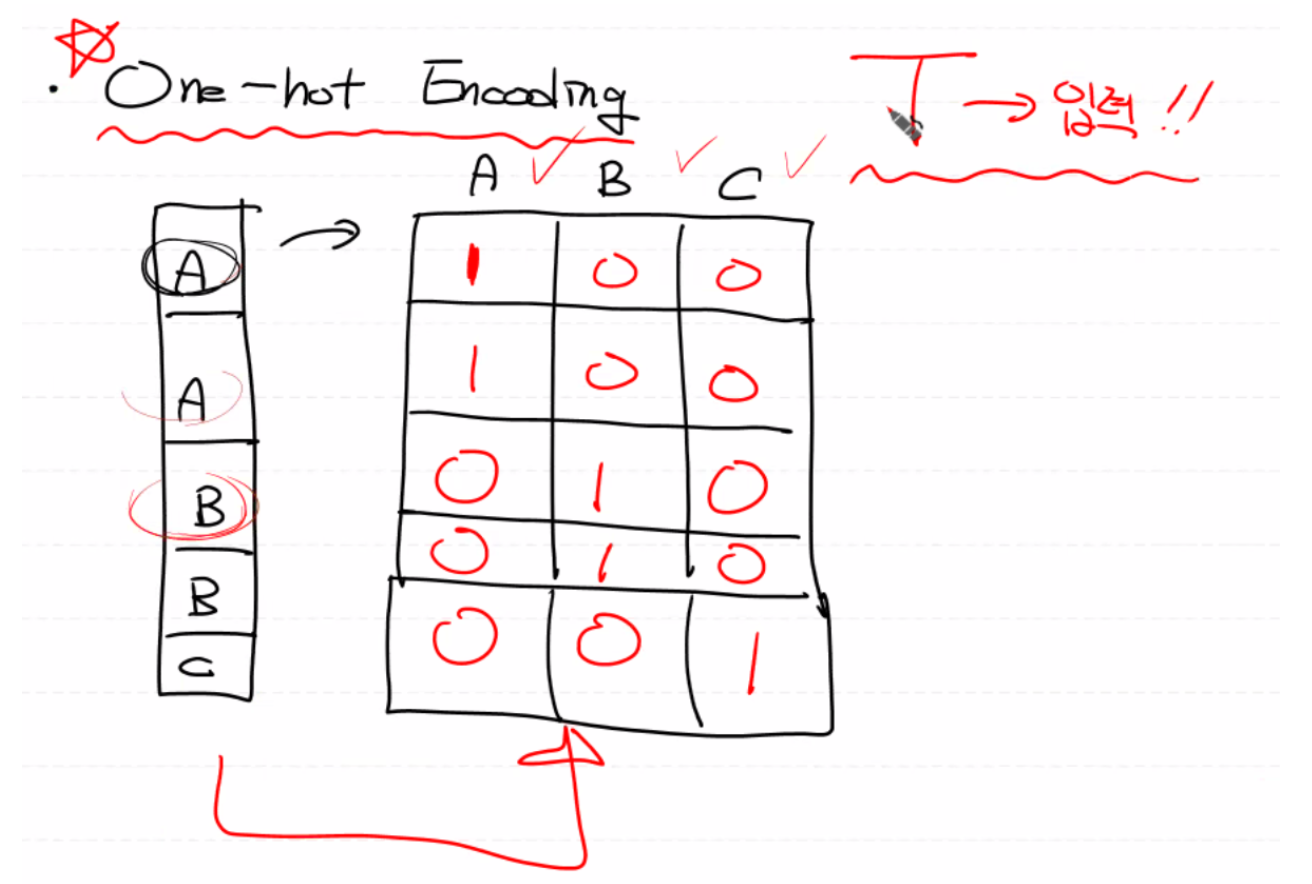 · One-hot Encoding
T → 입력!!
A B C
A 1 0 0
A 1 0 0
B 0 1 0
B 0 1 0
C 0 0 1